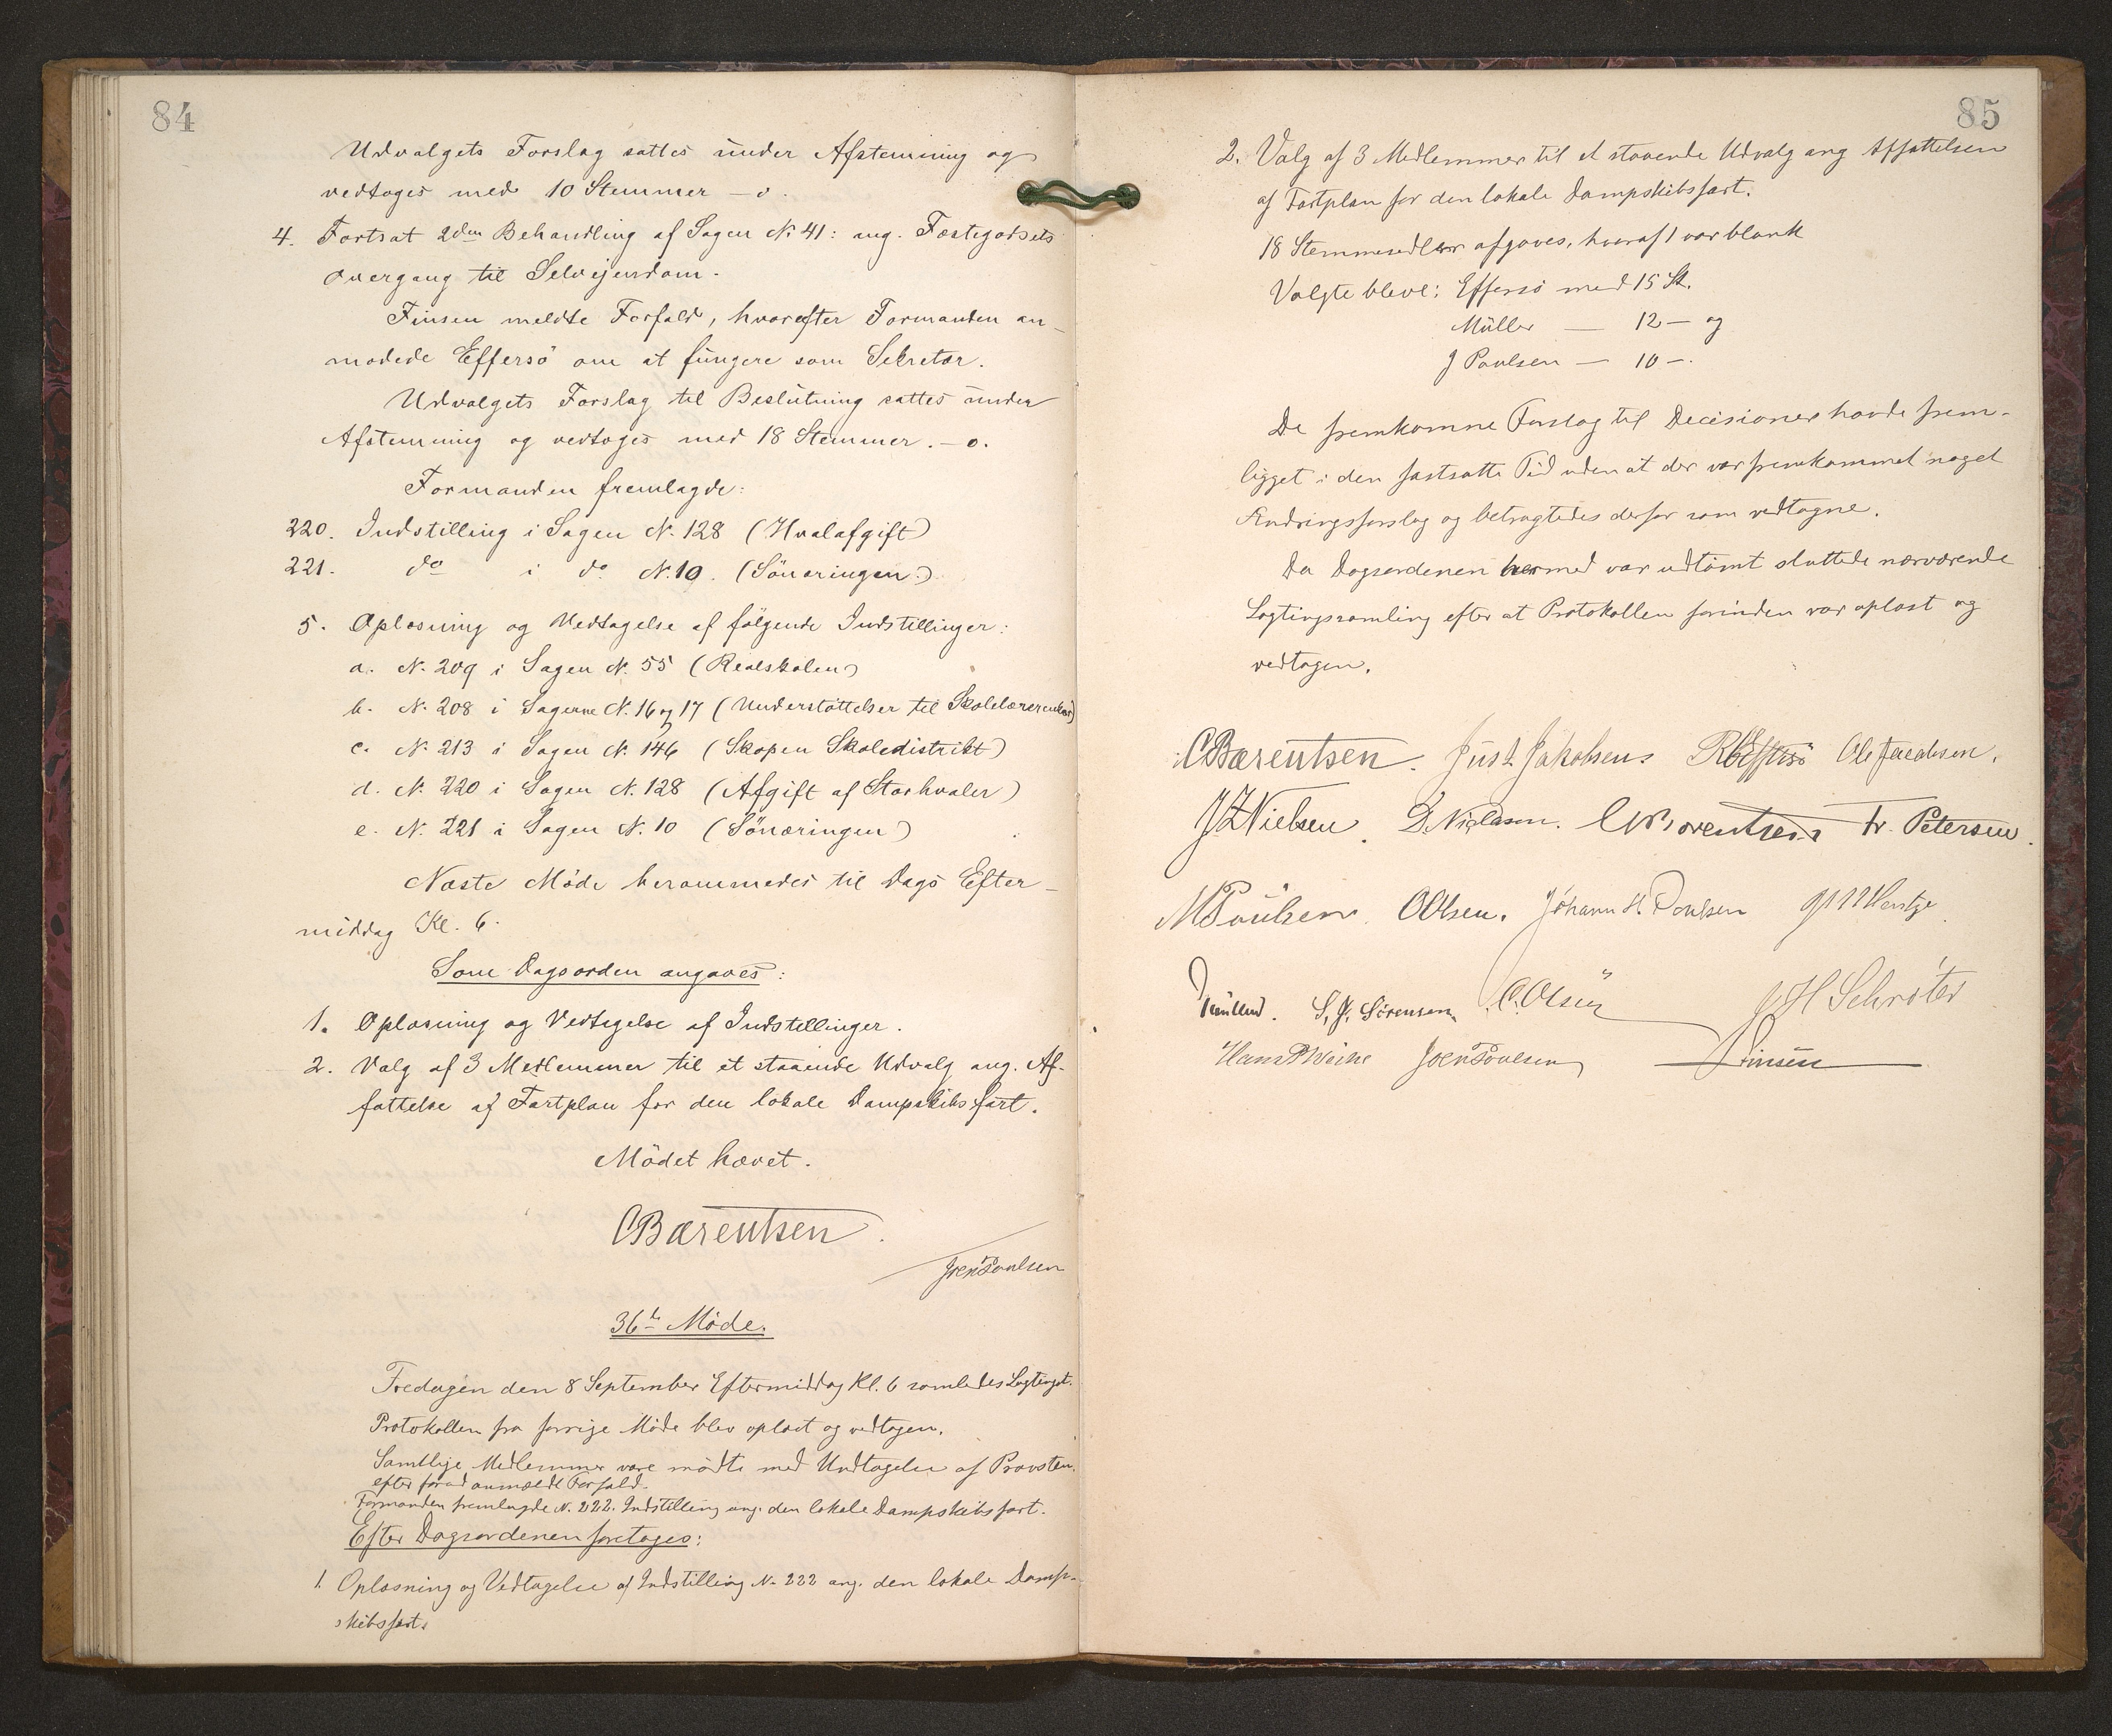 84
Udvalgets Forslag sattes under Afstemning og
vedtoges med 10 Stemmer – 0.
4. Fortsat 2den Behandling af Sagen N. 41: ang. Fæstegodsets
Overgang til Selvejendom.
Finsen meldte Forfald, hvorefter Formanden an-
modede Effersö om at fungere som Sekretær.
Udvalgets Forslag til Beslutning sattes under
Afstemning og vedtoges med 18 Stemmer. – 0.
Formanden fremlagde:
220. Indstilling i Sagen N. 128 (Hvalafgift)
221. do i do N. 10. (Sönæringen)
5. Oplæsning og Vedtagelse af fölgende Indstillinger:
a. N. 209 i Sagen N. 55 (Realskolen)
b. N. 208 i Sagerne N. 16 og 17 (Understöttelser til
c. N. 213 i Sagen N. 146 (Skopen Skoledistrikt)
d. N. 220 i Sagen N. 128 (Afgift af Storhvaler)
e. N. 221 i Sagen N. 10 (Sönæringen)
Næste Møde berammedes til Dags Efter-
middag Kl. 6.
Som Dagsorden angaves:
1. Oplæsning og Vedtagelse af Indstillinger.
2. Valg af 3 Medlemmer til et staaende Udvalg ang. Af-
fattelse af Fartplan for den lokale Dampskibsfart.
Mödet hævet.
CBærentsen.
JoenPoulsen
36te Møde.
Fredagen den 8 September Eftermiddag Kl. 6 samledes Lagtinget.
Protokollen fra forrige Möde blev oplæst og vedtagen.
Samtlige Medlemmer vare mödte med Undtagelse af Provsten
efter forud anmeldt Forfald.
Formanden fremlagde N. 222. Indstilling ang. den lokale Dampskibsfart.
Efter Dagsordenen foretoges:
1. Oplæsning og Vedtagelse af Indstilling N. 222 ang. den lokale Damp-
skibsfart.
85
2. Valg af 3 Medlemmer til et staaende Udvalg ang Affattelsen
af Fartplan for den lokale Dampskibsfart.
18 Stemmesedler afgaves, hvoraf 1 var blank
Valgte bleve: Effersö med 15 St.
Müller — 12 — og
J Poulsen — 10 —.
De fremkomne Forslag til Decisioner havde frem-
ligget i den fastsatte Tid uden at der var fremkommet noget
Ændringsforslag og betragtedes derfor som vedtagne.
Da Dagsordenen hermed var udtömt sluttede nærværende
Lagtingssamling efter at Protokollen forinden var oplæst og
vedtagen.
CBærentsen. Just Jakobsen. Effersö Ole Jacobsen.
Nielsen. D. Niclasen. Fr. Petersen.
MPoulsen. OOlsen. Jóhann H. Poulsen
Müller. S. J. Sörensen. O. Olsen JH Schröter
JoenPoulsen Finsen